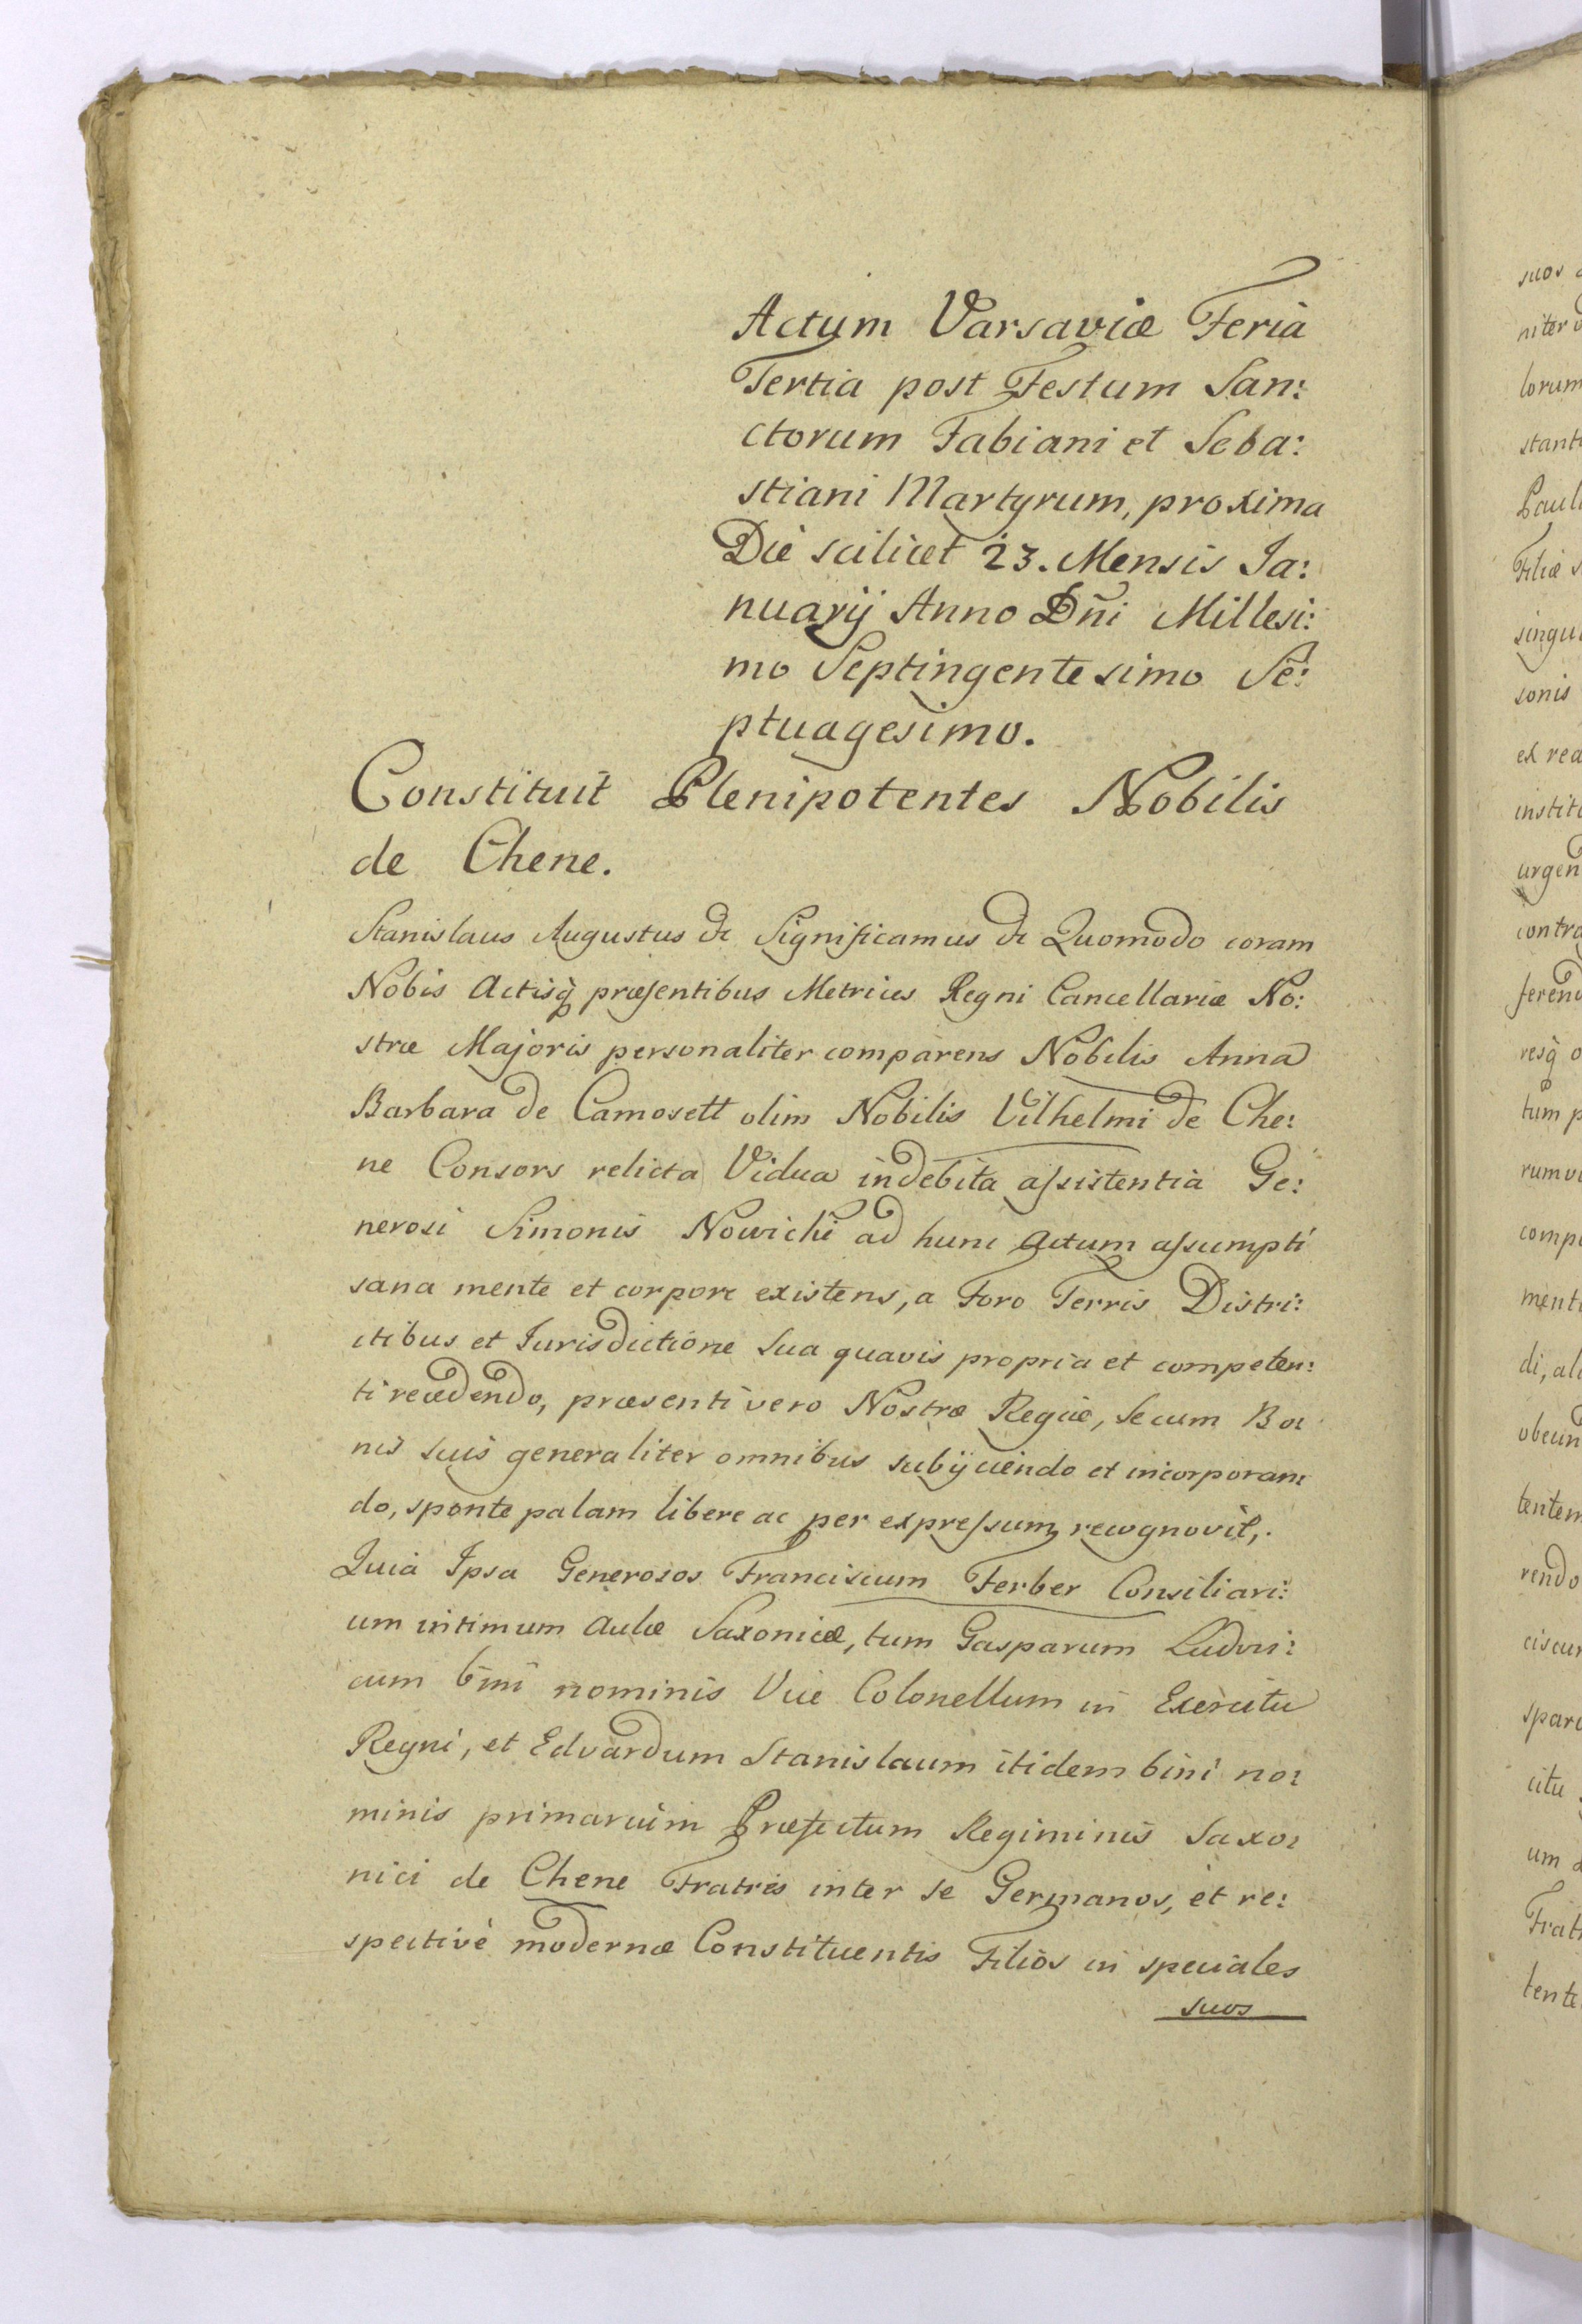 Actum Varsaviæ Feria
Tertia post Festum San:
ctorum Fabiani et Seba:
stiani Martyrum, proxima
Die scilicet 23. Mensis Ja:
nuarij Anno Dñi Millesi:
mo Septingentesimo Se:
ptuagesimo.
Constituit Plenipotentes Nobilis
de Chene.
Stanislaus Augustus &c Significamus &c Quomodo coram
Nobis Actisq̃ præsentibus Metrices Regni Cancellariæ No:
stræ Majoris personaliter comparens Nobilis Anna
Barbara de Camosett olim Nobilis Vilhelmi de Che:
ne Consors relicta Vidua indebita assistentia Ge:
nerosi Simonis Nowicki ad hunc Actum assumpti
sana mente et corpore existens, a Foro Terris Distri:
ctibus et Jurisdictione sua quavis propria et competen:
ti recedendo, præsenti vero Nostræ Regiæ, se cum Bo:
nis suis generaliter omnibus subijciendo et incorporan:
do, sponte palam libere ac per expressum recognovit,.
Quia Ipsa Generosos Franciscum Ferber Consiliari:
um intimum Aulæ Saxonicæ, tum Gasparum Ludvi:
cum bini nominis Vice Colonellum in Exercitu
Regni, et Edvardum Stanislaum itidem bini no:
minis primarium Præfectum Regiminis Saxo:
nici de Chene Fratres inter se Germanos, et re:
spectivè modernæ Constituentis Filios in speciales
suos
suos
niter
lorum
stant
Paul
Filiæ
singu
sonis
ex rea
instit
urgen
contra
feren
resq̃
tum p
rumv
comp
ment
di, al
obeun
tentem
rendo
ciscu
spar
citu
um
Frat
tente